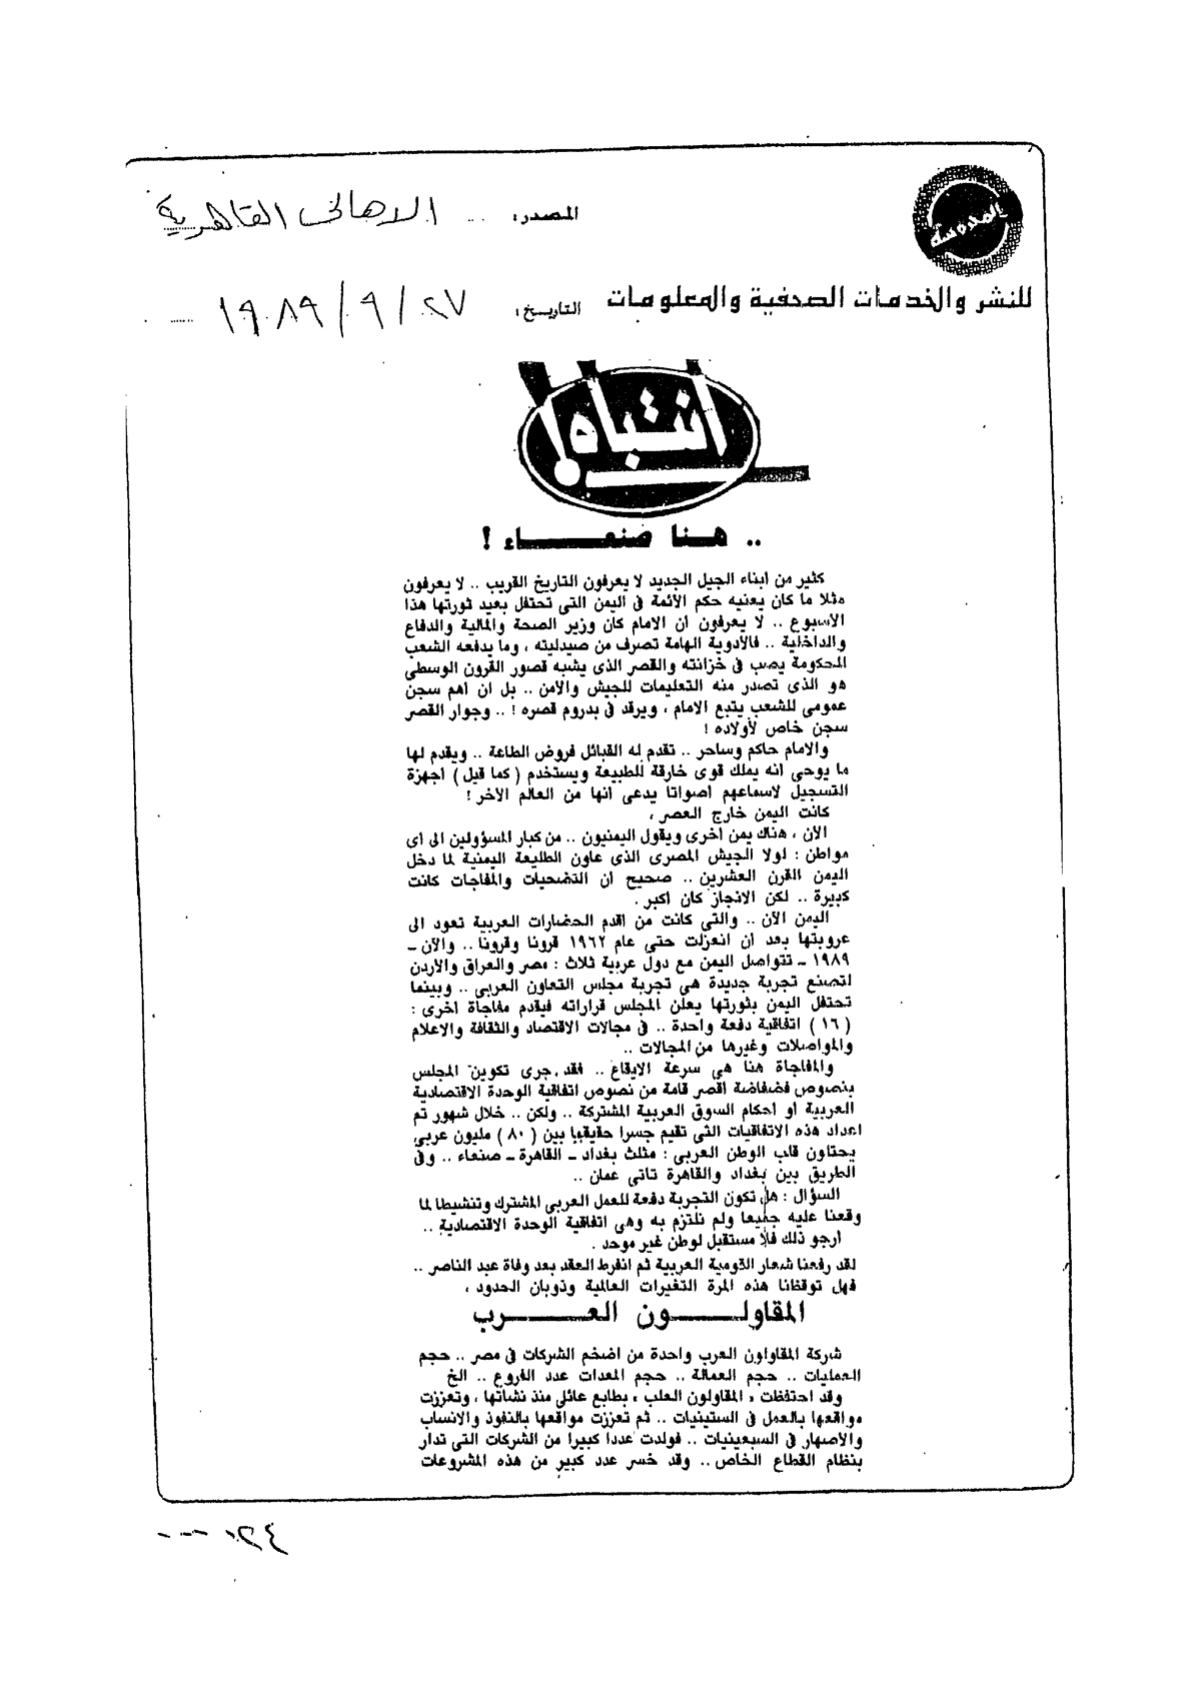 المصدر: .. الاهالى القاهرية
المحروسة
للنشر والخدمات الصحفية والمعلومات
التاريخ: ٢٧/٩/١٩٨٩
انتباه!
.. هنا صنعاء !
كثير من ابناء الجيل الجديد لا يعرفون التاريخ القريب .. لا يعرفون
مثلا ما كان يعنيه حكم الأئمة فى اليمن التى تحتفل بعيد ثورتها هذا
الاسبوع .. لا يعرفون ان الامام كان وزير الصحة والمالية والدفاع
والداخلية .. فالأدوية الهامة تصرف من صيدليته ، وما يدفعه الشعب
المحكومة يصب فى خزانته والقصر الذى يشبه قصور القرون الوسطى
هو الذى تصدر منه التعليمات للجيش والامن .. بل ان اهم سجن
عمومى للشعب يتبع الامام ، ويرقد فى بدروم قصره ! .. وجوار القصر
سجن خاص لأولاده !
والامام حاكم وساحر .. تقدم له القبائل فروض الطاعة .. ويقدم لها
ما يوحى انه يملك قوى خارقة للطبيعة ويستخدم ( كما قيل ) اجهزة
التسجيل لاسماعهم اصواتا يدعى انها من العالم الآخر !
كانت اليمن خارج العصر ،
الآن ، هناك يمن اخرى ويقول اليمنيون .. من كبار المسؤولين الى اى
مواطن : لولا الجيش المصرى الذى عاون الطليعة اليمنية لما دخل
اليمن القرن العشرين .. صحيح ان التضحيات والمفاجات كانت
كبيرة .. لكن الانجاز كان اكبر .
اليمن الآن .. والتى كانت من اقدم الحضارات العربية تعود الى
عروبتها بعد ان انعزلت حتى عام ١٩٦٢ قرونا وقرونا .. والآن ـ
١٩٨٩ ـ تتواصل اليمن مع دول عربية ثلاث : مصر والعراق والأردن
لتصنع تجربة جديدة هى تجربة مجلس التعاون العربى .. وبينما
تحتفل اليمن بثورتها يعلن المجلس قراراته فيقدم مفاجاة اخرى :
( ١٦ ) اتفاقية دفعة واحدة .. فى مجالات الاقتصاد والثقافة والاعلام
والمواصلات وغيرها من المجالات ..
والمفاجاة هنا هى سرعة الايقاع .. فقد جرى تكوين المجلس
بنصوص فضفاضة اقصر قامة من نصوص اتفاقية الوحدة الاقتصادية
العربية او احكام السوق العربية المشتركة .. ولكن .. خلال شهور تم
اعداد هذه الاتفاقيات التى تقيم جسرا حقيقيا بين ( ٨٠ ) مليون عربى
يحتلون قلب الوطن العربى : مثلث بغداد ـ القاهرة ـ صنعاء .. وفى
الطريق بين بغداد والقاهرة تاتى عمان ..
السؤال : هل تكون التجربة دفعة للعمل العربى المشترك وتنشيطا لما
وقعنا عليه جميعا ولم نلتزم به وهى اتفاقية الوحدة الاقتصادية ..
ارجو ذلك فلا مستقبل لوطن غير موحد .
لقد رفعنا شعار القومية العربية ثم انفرط العقد بعد وفاة عبد الناصر ..
فهل توقظنا هذه المرة التغيرات العالمية وذوبان الحدود ،
المقاولون العرب
شركة المقاولون العرب واحدة من اضخم الشركات فى مصر .. حجم
العمليات .. حجم العمالة .. حجم المعدات عدد الفروع .. الخ
وقد احتفظت ، المقاولون العلب ، بطابع عائلى منذ نشاتها ، وتعززت
مواقعها بالعمل فى الستينيات .. ثم تعززت مواقعها بالنفوذ والانساب
والاصهار فى السبعينيات .. فولدت عددا كبيرا من الشركات التى تدار
بنظام القطاع الخاص .. وقد خسر عدد كبير من هذه المشروعات